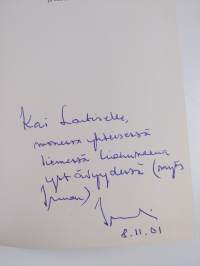 Kai Laitiselle,
monessa yhteisessä
liemessä liotettuna
ystävyydessä (myös
8.11.01